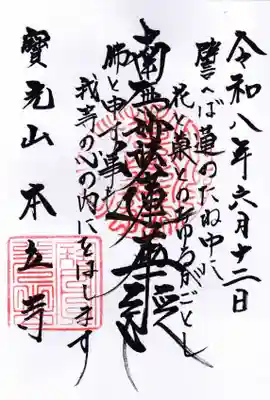 令和八年六月十二日
譬へば蓮のたね中に
花と菓との帯るがごとし
南無妙法蓮華経
佛と申す事も
我等の心の内にをはします
寶光山本立寺